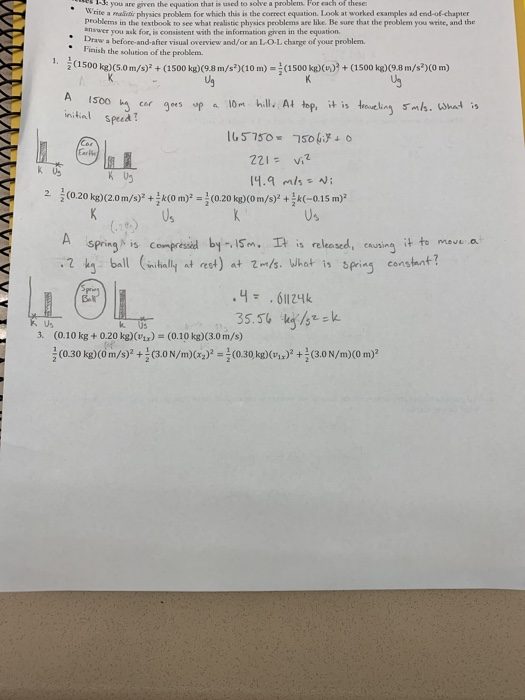 1-3: you are given the equation that is used to solve a problem. For each of these
• Write a realistic physics problem for which this is the correct equation. Look at worked examples ad end-of-chapter
problems in the textbook to see what realistic physics problems are like. Be sure that the problem you write, and the
answer you ask for, is consistent with the information given in the equation.
• Draw a before-and-after visual overview and/or an L-O-L charge of your problem.
• Finish the solution of the problem.
1. ½(1500 kg)(5.0 m/s)² + (1500 kg)(9.8 m/s²)(10 m) = ½(1500 kg)(vᵢ)² + (1500 kg)(9.8 m/s²)(0 m)
K Ug K Ug
A 1500 kg car goes up a 10m hill. At top, it is traveling 5 m/s. What is
initial speed?
165750 = 750vᵢ² + 0
Car
Earth
221 = vᵢ²
K Ug K Ug
14.9 m/s = vᵢ
2. ½(0.20 kg)(2.0 m/s)² + ½k(0 m)² = ½(0.20 kg)(0 m/s)² + ½k(−0.15 m)²
K Us K Us
A spring is compressed by -.15m. It is released, causing it to move a
.2 kg ball (initially at rest) at 2 m/s. What is spring constant?
Spring
Ball
.4 = .01124k
35.56 kg/s² = k
K Us K Us
3. (0.10 kg + 0.20 kg)(v₁ₓ) = (0.10 kg)(3.0 m/s)
½(0.30 kg)(0 m/s)² + ½(3.0 N/m)(x₂)² = ½(0.30 kg)(v₁ₓ)² + ½(3.0 N/m)(0 m)²